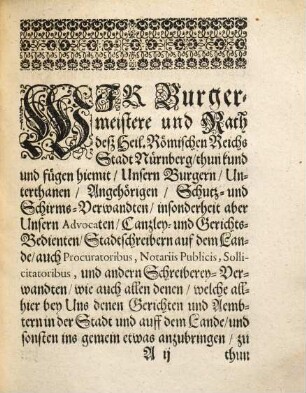 WIR Burger-
meistere und Rath
deß Heil. Römischen Reichs
Stadt Nürnberg / thun kund
und fügen hiemit / Unsern Burgern / Un-
terthanen / Angehörigen / Schutz- und
Schirms-Verwandten / insonderheit aber
Unsern Advocaten / Canzley- und Gerichts-
Bedienten / Stadtschreibern auf dem Lan-
de / auch Procuratoribus, Notariis Publicis, Solli-
citatoribus, und andern Schreiberey-Ver-
wandten / wie auch allen denen / welche all-
hier bey Uns denen Gerichten und Aemb-
tern in der Stadt und auff dem Lande / und
sonsten ins gemein etwas anzubringen / zu
A ij thun